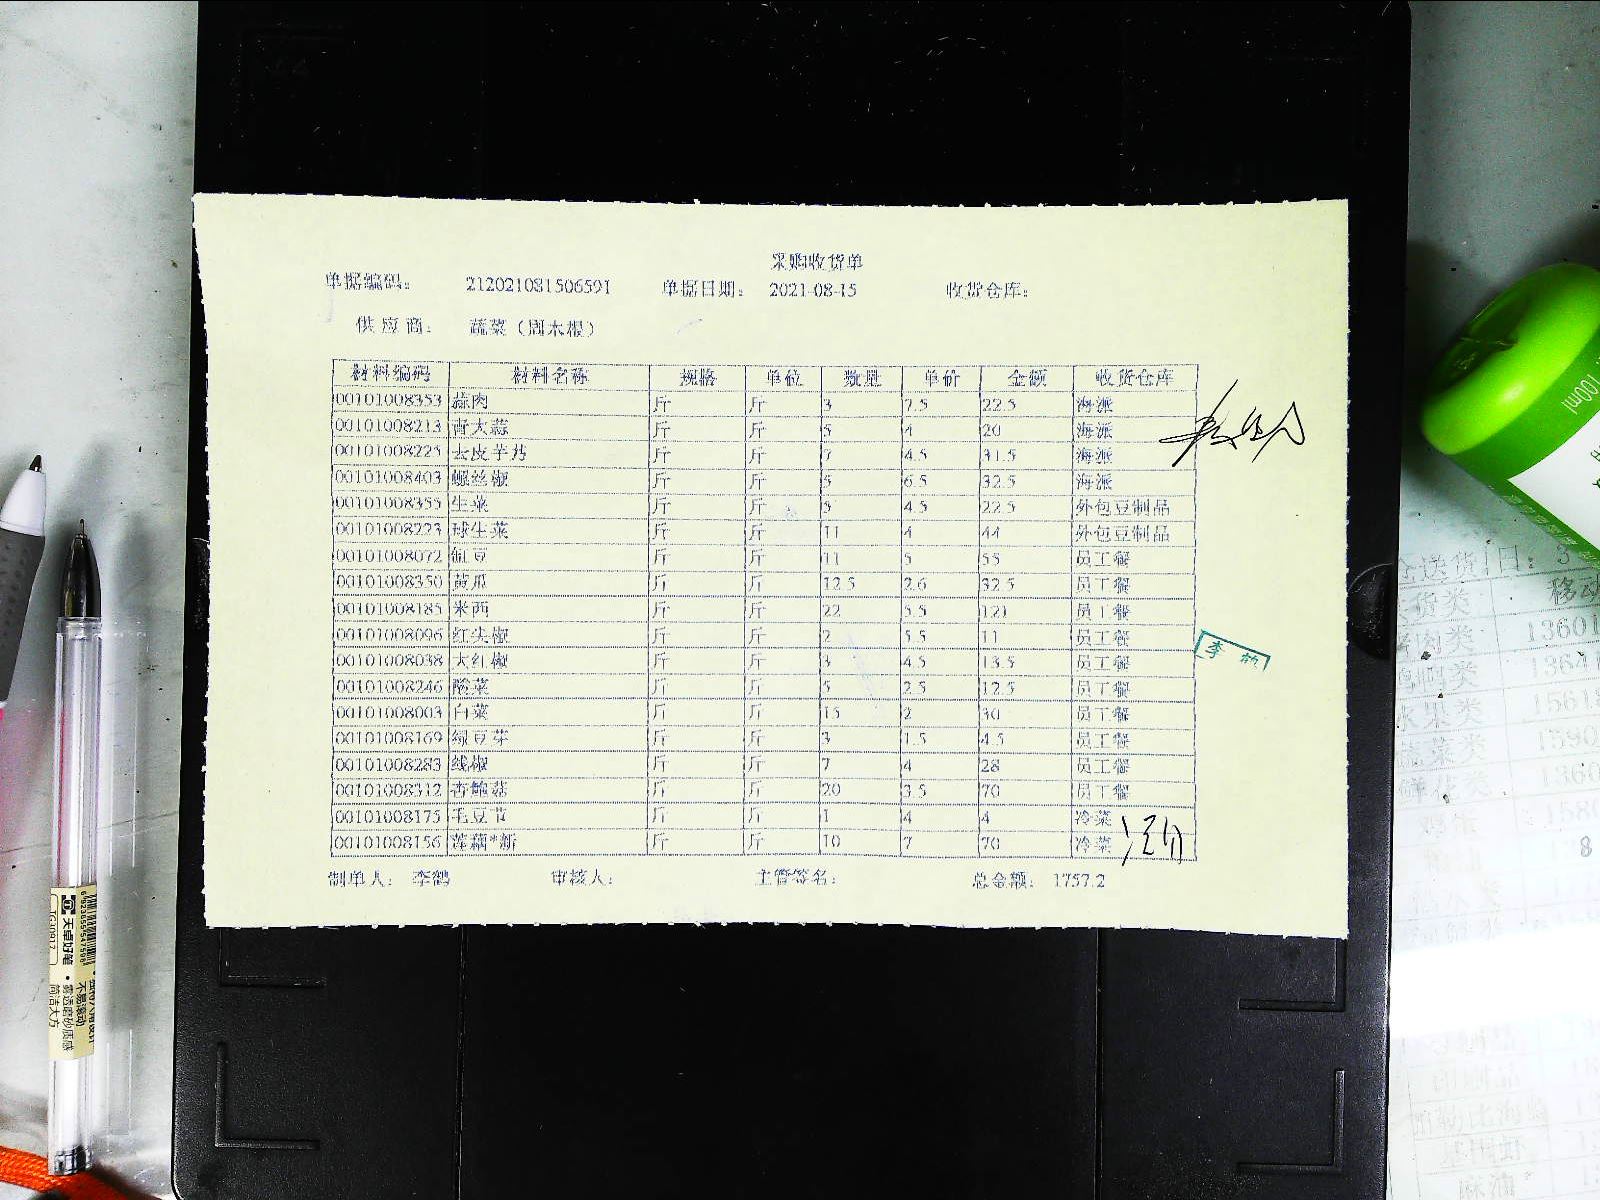 采购收货单
单据编码： 212021081506591 单据日期： 2021-08-15 收货仓库：
供应商： 蔬菜（周木根）
材料编码 材料名称 规格 单位 数量 单价 金额 收货仓库
00101008353 蒜肉 斤 斤 3 7.5 22.5 海派
00101008213 青大蒜 斤 斤 5 4 20 海派
00101008225 去皮芋艿 斤 斤 7 4.5 31.5 海派
00101008403 螺丝椒 斤 斤 5 6.5 32.5 海派
00101008355 生菜 斤 斤 5 4.5 22.5 外包豆制品
00101008223 球生菜 斤 斤 11 4 44 外包豆制品
00101008072 豇豆 斤 斤 11 5 55 员工餐
00101008350 黄瓜 斤 斤 12.5 2.6 32.5 员工餐
00101008185 米西 斤 斤 22 5.5 121 员工餐
00101008096 红尖椒 斤 斤 2 5.5 11 员工餐
00101008038 大红椒 斤 斤 3 4.5 13.5 员工餐
00101008246 酸菜 斤 斤 5 2.5 12.5 员工餐
00101008003 白菜 斤 斤 15 2 30 员工餐
00101008169 绿豆芽 斤 斤 3 1.5 4.5 员工餐
00101008283 线椒 斤 斤 7 4 28 员工餐
00101008312 杏鲍菇 斤 斤 20 3.5 70 员工餐
00101008175 毛豆节 斤 斤 1 4 4 冷菜
00101008156 莲藕*新 斤 斤 10 7 70 冷菜
制单人： 李鹤 审核人： 主管签名： 总金额： 1757.2
李鹤
100ml
天卓好笔
不易滚动
雾透磨砂质感
简洁大方
TG30917
送货日：3
货类 移动
肉类 13601
水果类
蔬菜类